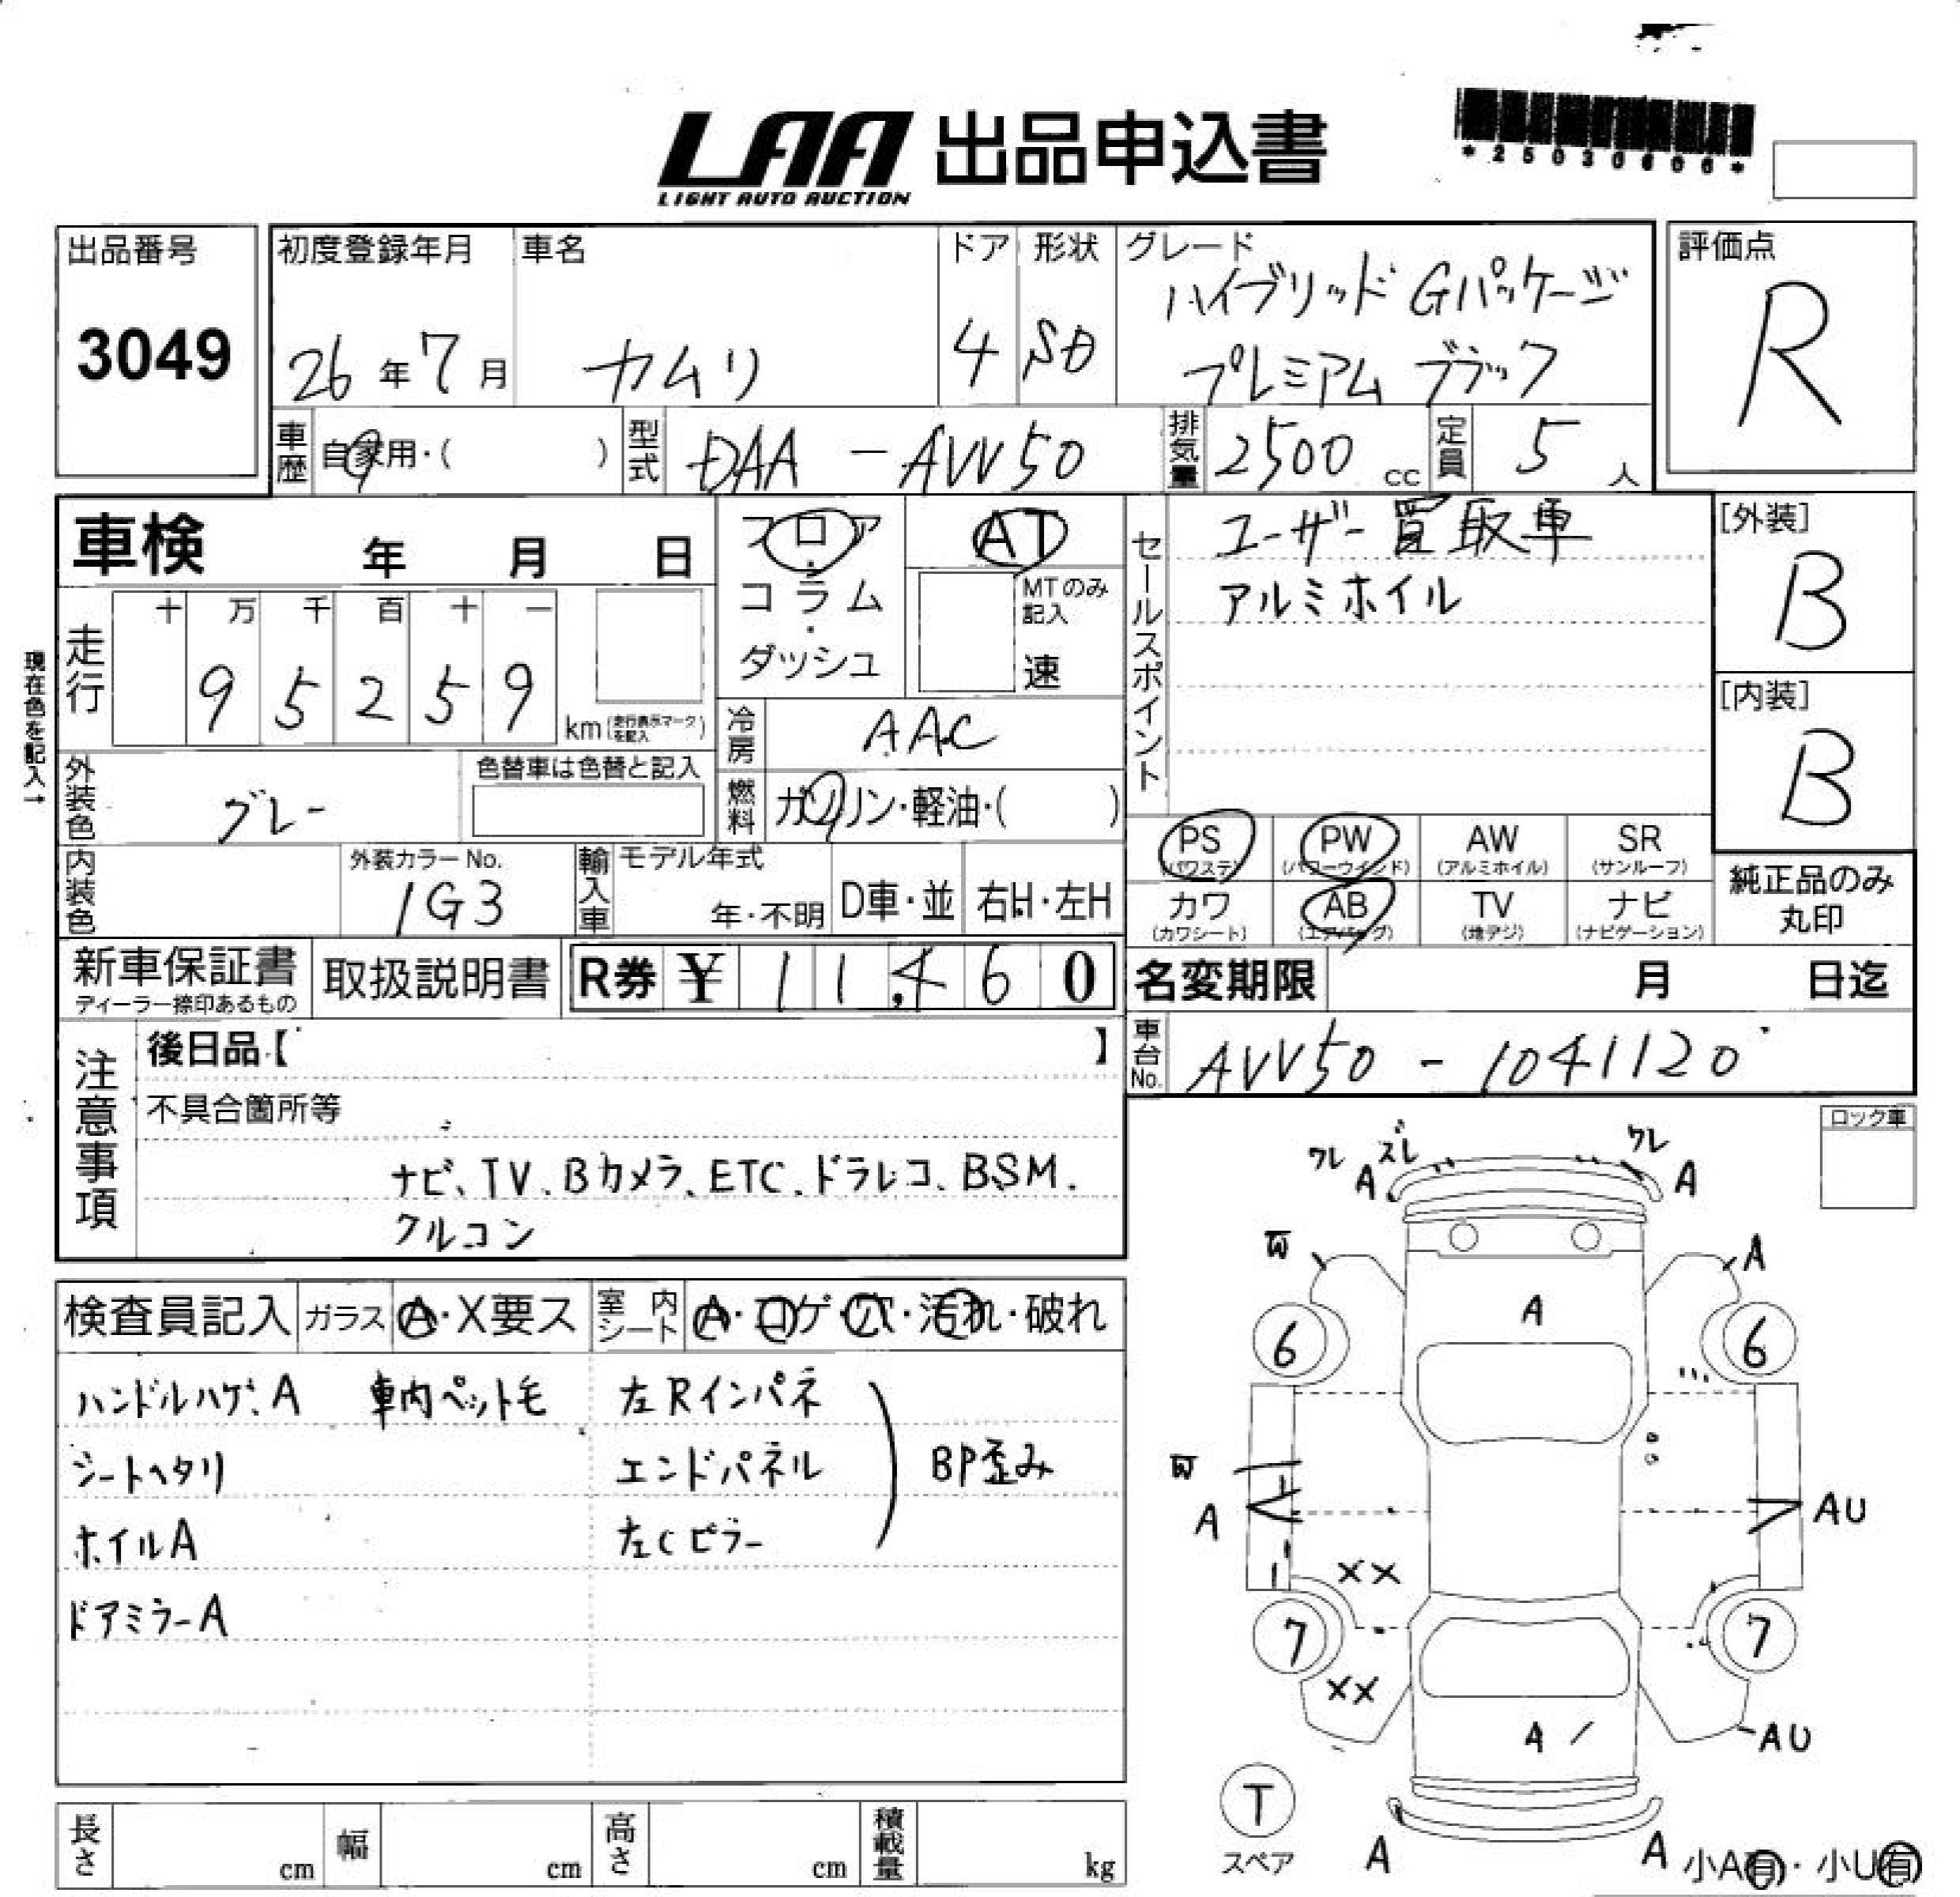 LAA 出品申込書
LIGHT AUTO AUCTION
*25030606*
出品番号
3049
初度登録年月
26年7月
車名
カムリ
ドア
4
形状
SD
グレード
ハイブリッド Gパッケージ
プレミアム ブラック
評価点
R
車歴
自家用・( )
型式
DAA - AVV50
排気量
2500 cc
定員
5 人
車検 年 月 日
フロア
・
コラム
・
ダッシュ
AT
MTのみ
記入
速
セールスポイント
ユーザー買取車
アルミホイル
[外装]
B
[内装]
B
現在色を記入→
走行
十 万 千 百 十 一
9 5 2 5 9
km(走行表示マークを記入)
冷房
AAC
外装色
グレー
色替車は色替と記入
燃料
ガソリン・軽油・( )
PS
(パワステ)
PW
(パワーウインド)
AW
(アルミホイル)
SR
(サンルーフ)
カワ
(カワシート)
AB
(エアバッグ)
TV
(地デジ)
ナビ
(ナビゲーション)
純正品のみ
丸印
内装色
外装カラーNo.
1G3
輸入車
モデル年式
年・不明
D車・並
右H・左H
新車保証書
ディーラー捺印あるもの
取扱説明書
R券 ¥ 1 1,4 6 0
名変期限 月 日迄
車台No.
AVV50 - 1041120
注意事項
後日品【 】
不具合箇所等
ナビ、TV、Bカメラ、ETC、ドラレコ、BSM.
クルコン
ロック車
検査員記入
ガラス
A・X要ス
室内シート
A・コゲ・穴・汚れ・破れ
ハンドルハゲ、A 車内ペット毛
シートヘタリ
ホイルA
ドアミラーA
左Rインパネ
エンドパネル
左Cピラー
BP歪み
ワレ ズレ ワレ
A A
W A
A
6 6
W
A AU
XX
7 7
XX
A AU
T
スペア
A A
小A有・小U有
長さ cm
幅 cm
高さ cm
積載量 kg